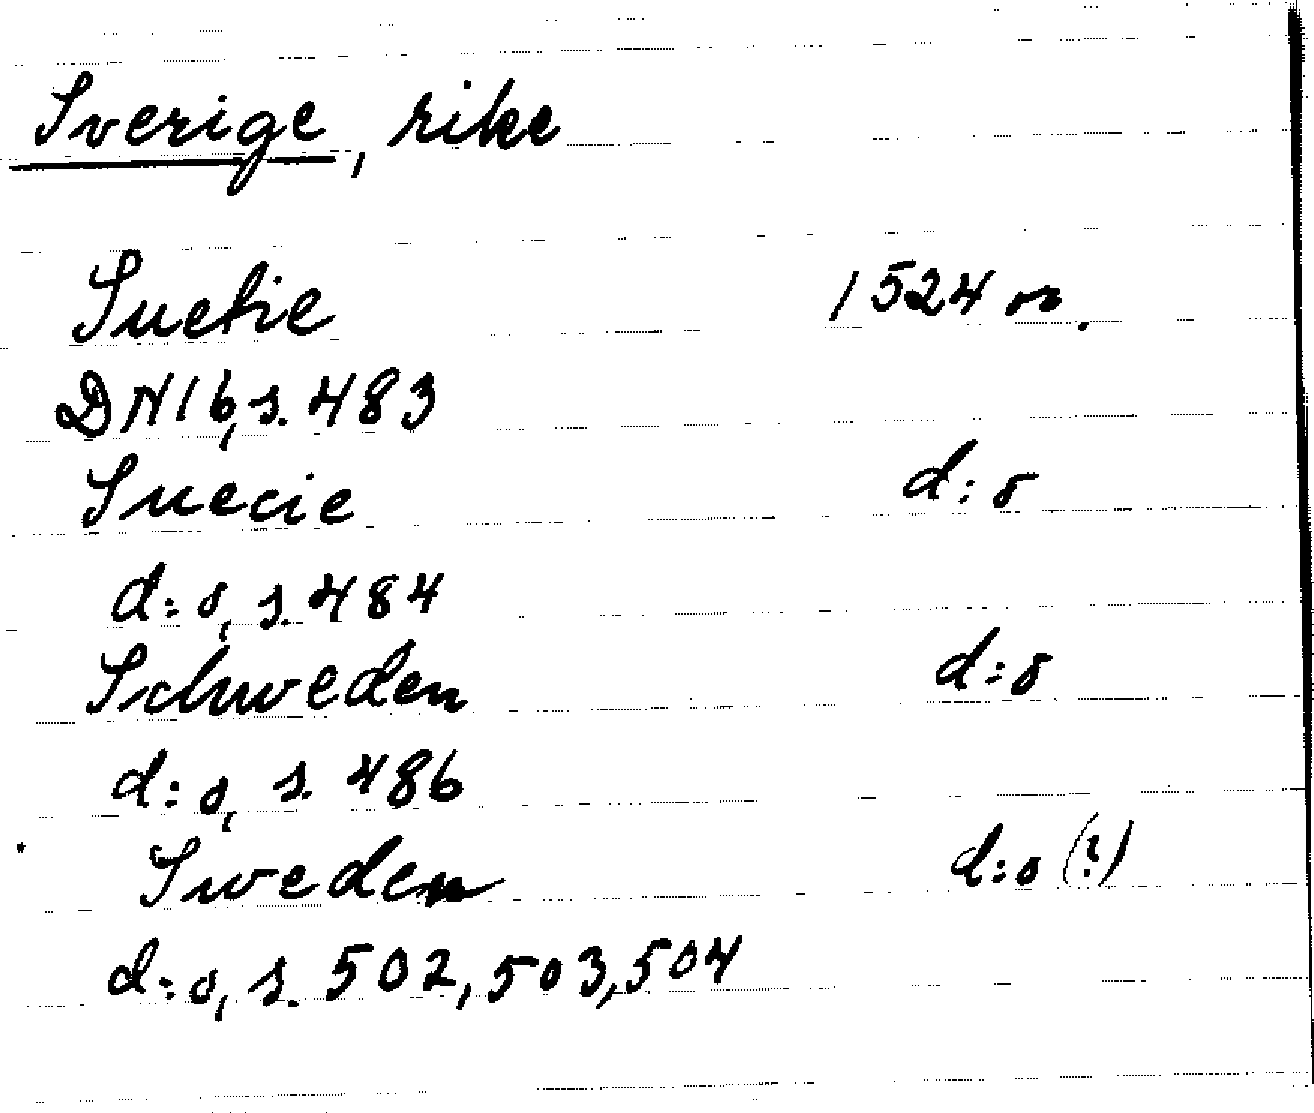 Sverige, rike
Suetie 1524 or.
DN 16, s. 483
Suecie d:o
d:o, s. 484
Schweden d:o
d:o, s. 486
Sweden d:o (?)
d:o, s. 502, 503, 504